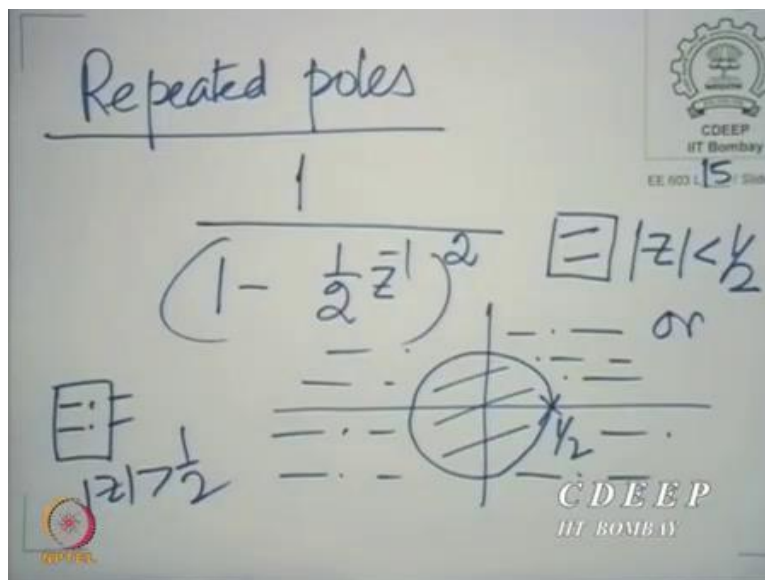 Repeated poles
CDEEP
IIT Bombay
EE 603 L 15 / Slid
1
(1 - 1/2 z^-1)^2
|z| < 1/2
or
1/2
|z| > 1/2
CDEEP
IIT BOMBAY
NPTEL